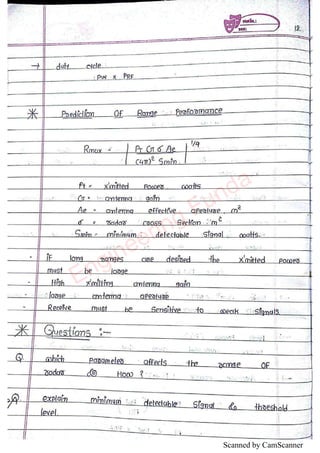 12
→ duty cycle
PW x PRF
* Prediction Of Range Performance
Rmax = [ PT G σ Ae / (4π)² Smin ] 1/4
Pt = X'mitted power watts
G = antenna gain
Ae = antenna effective aperature m²
σ = radar cross section m²
Smin = minimum detectable signal watts.
- if long ranges are desired the X'mitted power
must be large
- High X'mitting antenna gain
- large antenna aperature
- Receive must be sensitive to weak signals
* Questions :-
Q which parameter affects the range OF
radar & How ?
Q explain minimum detectable signal & threshold
level.
Engineering Funda
Scanned by CamScanner